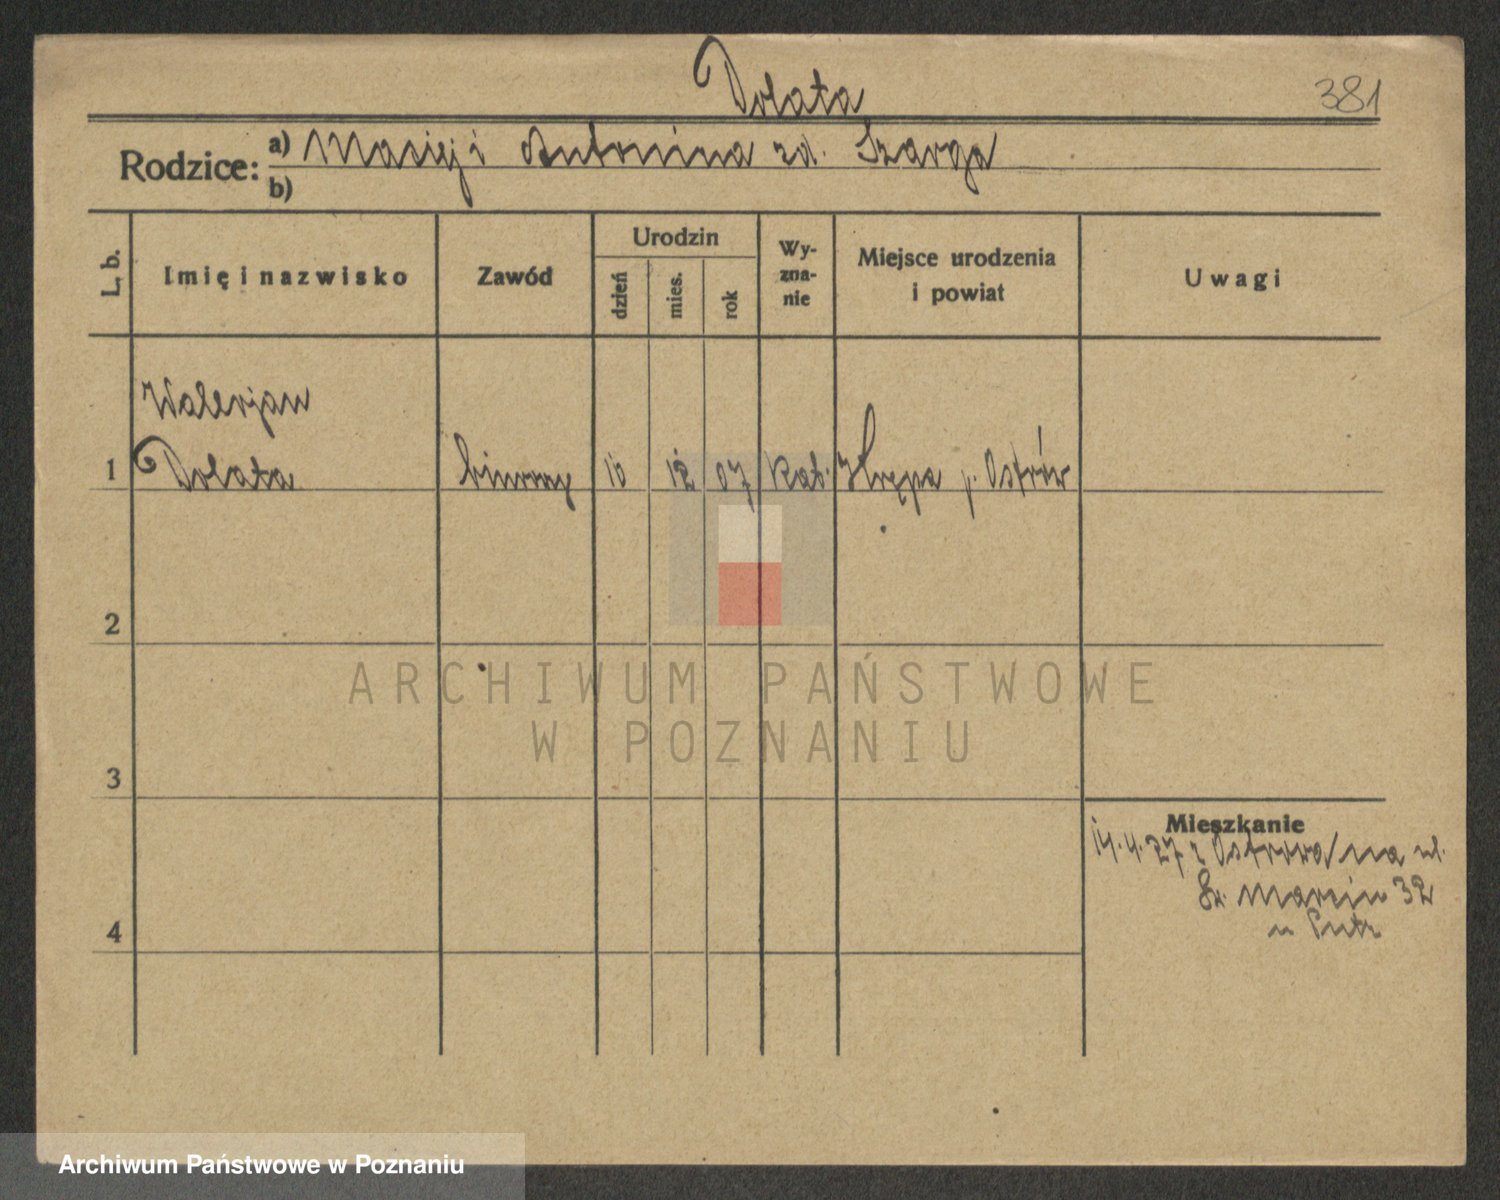 Dolata
381
Rodzice:
a) Maciej i Antonina zd. Szarga
b)
L. b.
Imię i nazwisko
Zawód
Urodzin
dzień
mies.
rok
Wy-
zna-
nie
Miejsce urodzenia
i powiat
Uwagi
Walerjan
1 Dolata biurowy 10 12 07 kat. p. Ostrów
2
3
4
Mieszkanie
14.4.27 z Ostrowa/na ul.
Św. Marcin 32
u
ARCHIWUM PAŃSTWOWE
W POZNANIU
Archiwum Państwowe w Poznaniu